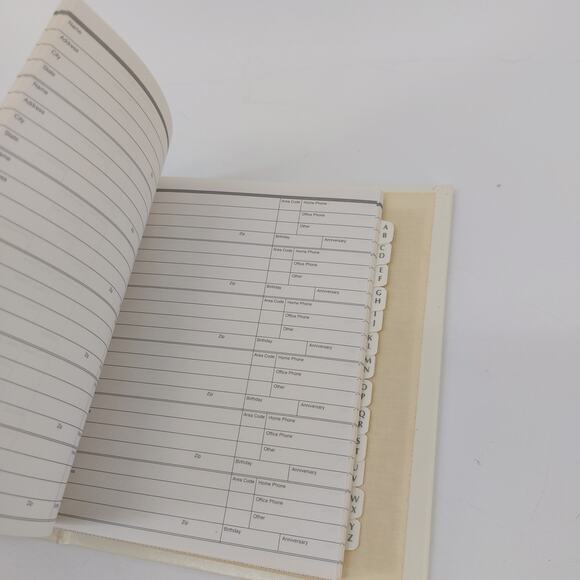 Name
Address
City
State
Name
Address
City
State
Address
Zip
Zip
Area Code Home Phone
Office Phone
Other
Zip Birthday Anniversary
Area Code Home Phone
Office Phone
Other
Zip Birthday Anniversary
Area Code Home Phone
Office Phone
Other
Zip Birthday Anniversary
Area Code Home Phone
Office Phone
Other
Zip Birthday Anniversary
Area Code Home Phone
Office Phone
Other
Zip Birthday Anniversary
Area Code Home Phone
Office Phone
Other
Zip Birthday Anniversary
A
B
C
D
E
F
G
H
I
J
K
L
M
N
O
P
Q
R
S
T
U
V
W
X
Y
Z